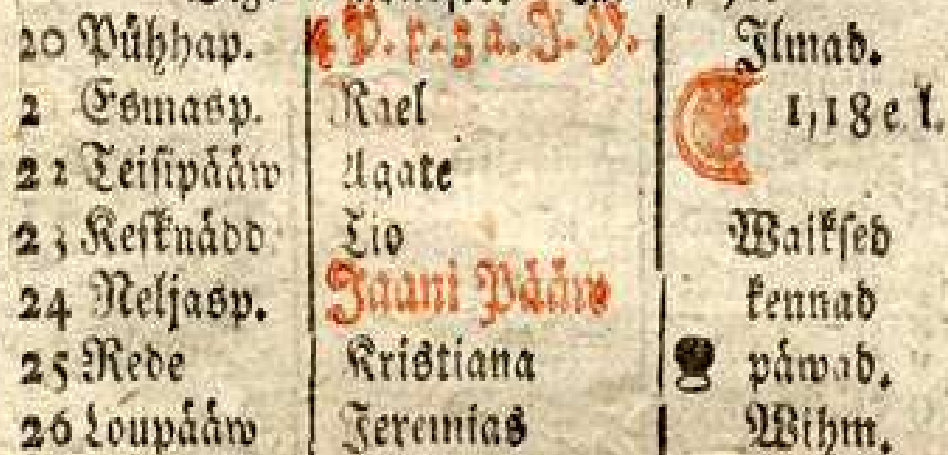 20 Pühhap. 4 P. p. 3 a. J. P. Ilmad.
2 Esmasp. Rael 1,18 e. l.
22 Teisipääw Agate
23 Kesknädd Lio Waiksed
24 Neljasp. Jaani Pääw kennad
25 Rede Kristiana päwad.
26 Loupääw Jeremias Wihm.